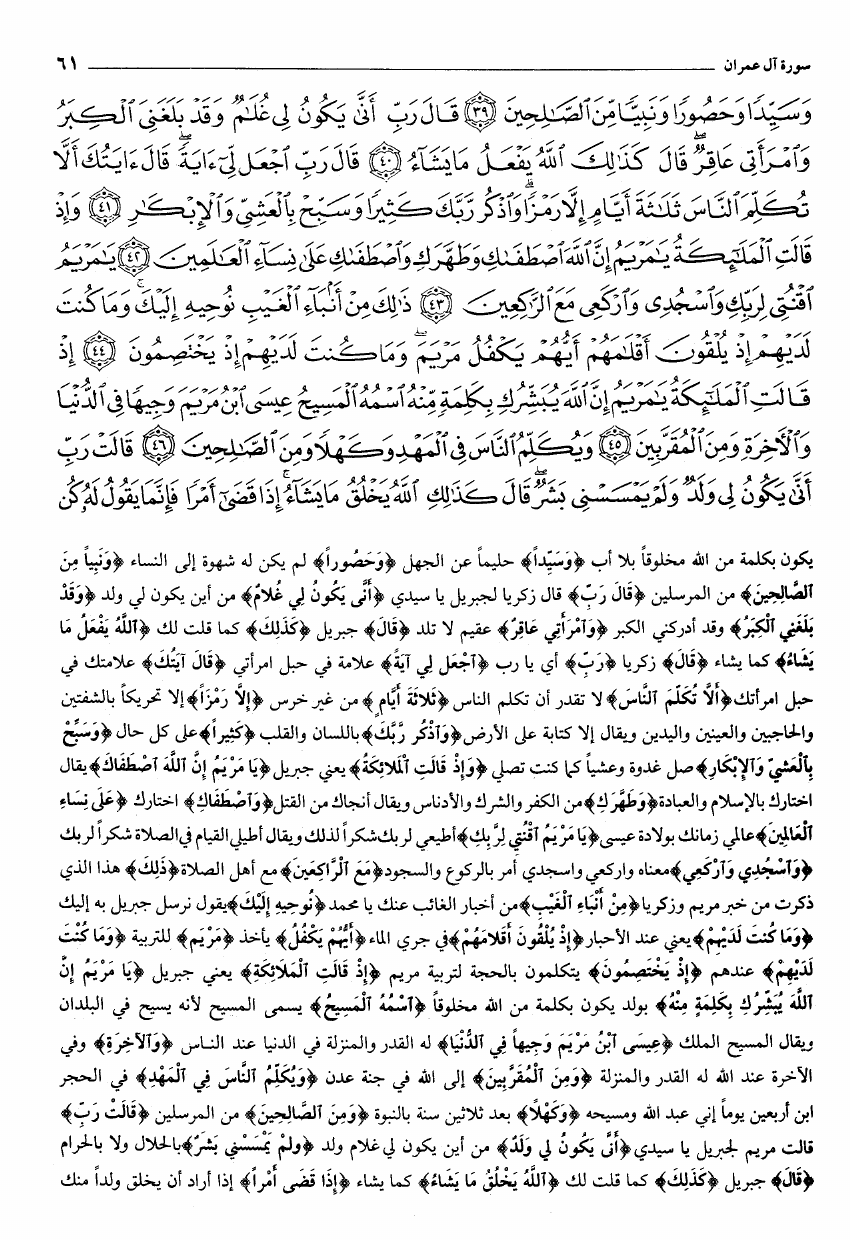 سورة آل عمران ٦١
وَسَيِّدًا وَحَصُورًا وَنَبِيًّا مِّنَ ٱلصَّـٰلِحِينَ ٣٩ قَالَ رَبِّ أَنَّىٰ يَكُونُ لِى غُلَـٰمٌ وَقَدْ بَلَغَنِىَ ٱلْكِبَرُ
وَٱمْرَأَتِى عَاقِرٌ ۖ قَالَ كَذَٰلِكَ ٱللَّهُ يَفْعَلُ مَا يَشَآءُ ٤٠ قَالَ رَبِّ ٱجْعَل لِّىٓ ءَايَةً ۖ قَالَ ءَايَتُكَ أَلَّا
تُكَلِّمَ ٱلنَّاسَ ثَلَـٰثَةَ أَيَّامٍ إِلَّا رَمْزًا ۗ وَٱذْكُر رَّبَّكَ كَثِيرًا وَسَبِّحْ بِٱلْعَشِىِّ وَٱلْإِبْكَـٰرِ ٤١ وَإِذْ
قَالَتِ ٱلْمَلَـٰٓئِكَةُ يَـٰمَرْيَمُ إِنَّ ٱللَّهَ ٱصْطَفَىٰكِ وَطَهَّرَكِ وَٱصْطَفَىٰكِ عَلَىٰ نِسَآءِ ٱلْعَـٰلَمِينَ ٤٢ يَـٰمَرْيَمُ
ٱقْنُتِى لِرَبِّكِ وَٱسْجُدِى وَٱرْكَعِى مَعَ ٱلرَّٰكِعِينَ ٤٣ ذَٰلِكَ مِنْ أَنۢبَآءِ ٱلْغَيْبِ نُوحِيهِ إِلَيْكَ ۚ وَمَا كُنتَ
لَدَيْهِمْ إِذْ يُلْقُونَ أَقْلَـٰمَهُمْ أَيُّهُمْ يَكْفُلُ مَرْيَمَ ۖ وَمَا كُنتَ لَدَيْهِمْ إِذْ يَخْتَصِمُونَ ٤٤ إِذْ
قَالَتِ ٱلْمَلَـٰٓئِكَةُ يَـٰمَرْيَمُ إِنَّ ٱللَّهَ يُبَشِّرُكِ بِكَلِمَةٍ مِّنْهُ ٱسْمُهُ ٱلْمَسِيحُ عِيسَى ٱبْنُ مَرْيَمَ وَجِيهًا فِى ٱلدُّنْيَا
وَٱلْـَٔاخِرَةِ وَمِنَ ٱلْمُقَرَّبِينَ ٤٥ وَيُكَلِّمُ ٱلنَّاسَ فِى ٱلْمَهْدِ وَكَهْلًا وَمِنَ ٱلصَّـٰلِحِينَ ٤٦ قَالَتْ رَبِّ
أَنَّىٰ يَكُونُ لِى وَلَدٌ وَلَمْ يَمْسَسْنِى بَشَرٌ ۖ قَالَ كَذَٰلِكِ ٱللَّهُ يَخْلُقُ مَا يَشَآءُ ۚ إِذَا قَضَىٰٓ أَمْرًا فَإِنَّمَا يَقُولُ لَهُۥ كُن
يكون بكلمة من الله مخلوقاً بلا أب ﴿وَسَيِّداً﴾ حليماً عن الجهل ﴿وَحَصُوراً﴾ لم يكن له شهوة إلى النساء ﴿وَنَبِياً مِنَ
ٱلصَّالِحِينَ﴾ من المرسلين ﴿قَالَ رَبِّ﴾ قال زكريا لجبريل يا سيدي ﴿أَنَّى يَكُونُ لِي غُلامٌ﴾ من أين يكون لي ولد ﴿وَقَدْ
بَلَغَنِي ٱلْكِبَرُ﴾ وقد أدركني الكبر ﴿وَٱمْرَأَتِي عَاقِرٌ﴾ عقيم لا تلد ﴿قَالَ﴾ جبريل ﴿كَذَلِكَ﴾ كما قلت لك ﴿ٱللَّهُ يَفْعَلُ مَا
يَشَاءُ﴾ كما يشاء ﴿قَالَ﴾ زكريا ﴿رَبِّ﴾ أي يا رب ﴿ٱجْعَل لِي آيَةً﴾ علامة في حبل امرأتي ﴿قَالَ آيَتُكَ﴾ علامتك في
حبل امرأتك﴿أَلَّا تُكَلِّمَ ٱلنَّاسَ﴾ لا تقدر أن تكلم الناس ﴿ثَلاثَةَ أَيَّامٍ﴾ من غير خرس ﴿إِلَّا رَمْزَاً﴾إلا تحريكاً بالشفتين
والحاجبين والعينين واليدين ويقال إلا كتابة على الأرض﴿وَٱذْكُر رَّبَّكَ﴾باللسان والقلب ﴿كَثِيراً﴾على كل حال ﴿وَسَبِّحْ
بِٱلْعَشِيِّ وَٱلإِبْكَارِ﴾صل غدوة وعشياً كما كنت تصلي ﴿وَإِذْ قَالَتِ ٱلْمَلَائِكَةُ﴾ يعني جبريل﴿يَا مَرْيَمُ إِنَّ ٱللَّهَ ٱصْطَفَاكِ﴾يقال
اختارك بالإسلام والعبادة﴿وَطَهَّرَكِ﴾من الكفر والشرك والأدناس ويقال أنجاك من القتل﴿وَٱصْطَفَاكِ﴾ اختارك ﴿عَلَى نِسَاءِ
ٱلْعَالَمِينَ﴾عالمي زمانك بولادة عيسى﴿يَا مَرْيَمُ ٱقْنُتِي لِرَبِّكِ﴾أطيعي لربك شكراً لذلك ويقال أطيلي القيام في الصلاة شكراً لربك
﴿وَٱسْجُدِي وَٱرْكَعِي﴾معناه واركعي واسجدي أمر بالركوع والسجود﴿مَعَ ٱلرَّاكِعَينَ﴾مع أهل الصلاة﴿ذَلِكَ﴾ هذا الذي
ذكرت من خبر مريم وزكريا﴿مِنْ أَنْبَاءِ ٱلْغَيْبِ﴾من أخبار الغائب عنك يا محمد﴿نُوحِيهِ إِلَيْكَ﴾يقول نرسل جبريل به إليك
﴿وَمَا كُنتَ لَدَيْهِمْ﴾يعني عند الأحبار﴿إِذْ يُلْقُونَ أَقْلامَهُمْ﴾في جري الماء﴿أَيُّهُمْ يَكْفُلُ﴾ يأخذ ﴿مَرْيَمَ﴾ للتربية ﴿وَمَا كُنْتَ
لَدَيْهِمْ﴾ عندهم ﴿إِذْ يَخْتَصِمُونَ﴾ يتكلمون بالحجة لتربية مريم ﴿إِذْ قَالَتِ ٱلْمَلَائِكَةِ﴾ يعني جبريل ﴿يَا مَرْيَمُ إِنَّ
ٱللَّهَ يُبَشِّرُكِ بِكَلِمَةٍ مِنْهُ﴾ بولد يكون بكلمة من الله مخلوقاً ﴿ٱسْمُهُ ٱلْمَسِيحُ﴾ يسمى المسيح لأنه يسيح في البلدان
ويقال المسيح الملك ﴿عِيسَى ٱبْنُ مَرْيَمَ وَجِيهاً فِي ٱلدُّنْيَا﴾ له القدر والمنزلة في الدنيا عند الناس ﴿وَٱلآخِرَةِ﴾ وفي
الآخرة عند الله له القدر والمنزلة ﴿وَمِنَ ٱلْمُقَرَّبِينَ﴾ إلى الله في جنة عدن ﴿وَيُكَلِّمُ ٱلنَّاسَ فِي ٱلْمَهْدِ﴾ في الحجر
ابن أربعين يوماً إني عبد الله ومسيحه ﴿وَكَهْلاً﴾ بعد ثلاثين سنة بالنبوة ﴿وَمِنَ ٱلصَّالِحِينَ﴾ من المرسلين ﴿قَالَتْ رَبِّ﴾
قالت مريم لجبريل يا سيدي﴿أَنَّى يَكُونُ لِي وَلَدٌ﴾ من أين يكون لي غلام ولد ﴿وَلَمْ يَمْسَسْنِي بَشَرٌ﴾بالحلال ولا بالحرام
﴿قَالَ﴾ جبريل ﴿كَذَلِكَ﴾ كما قلت لك ﴿ٱللَّهُ يَخْلُقُ مَا يَشَاءُ﴾ كما يشاء ﴿إِذَا قَضَى أَمْراً﴾ إذا أراد أن يخلق ولداً منك